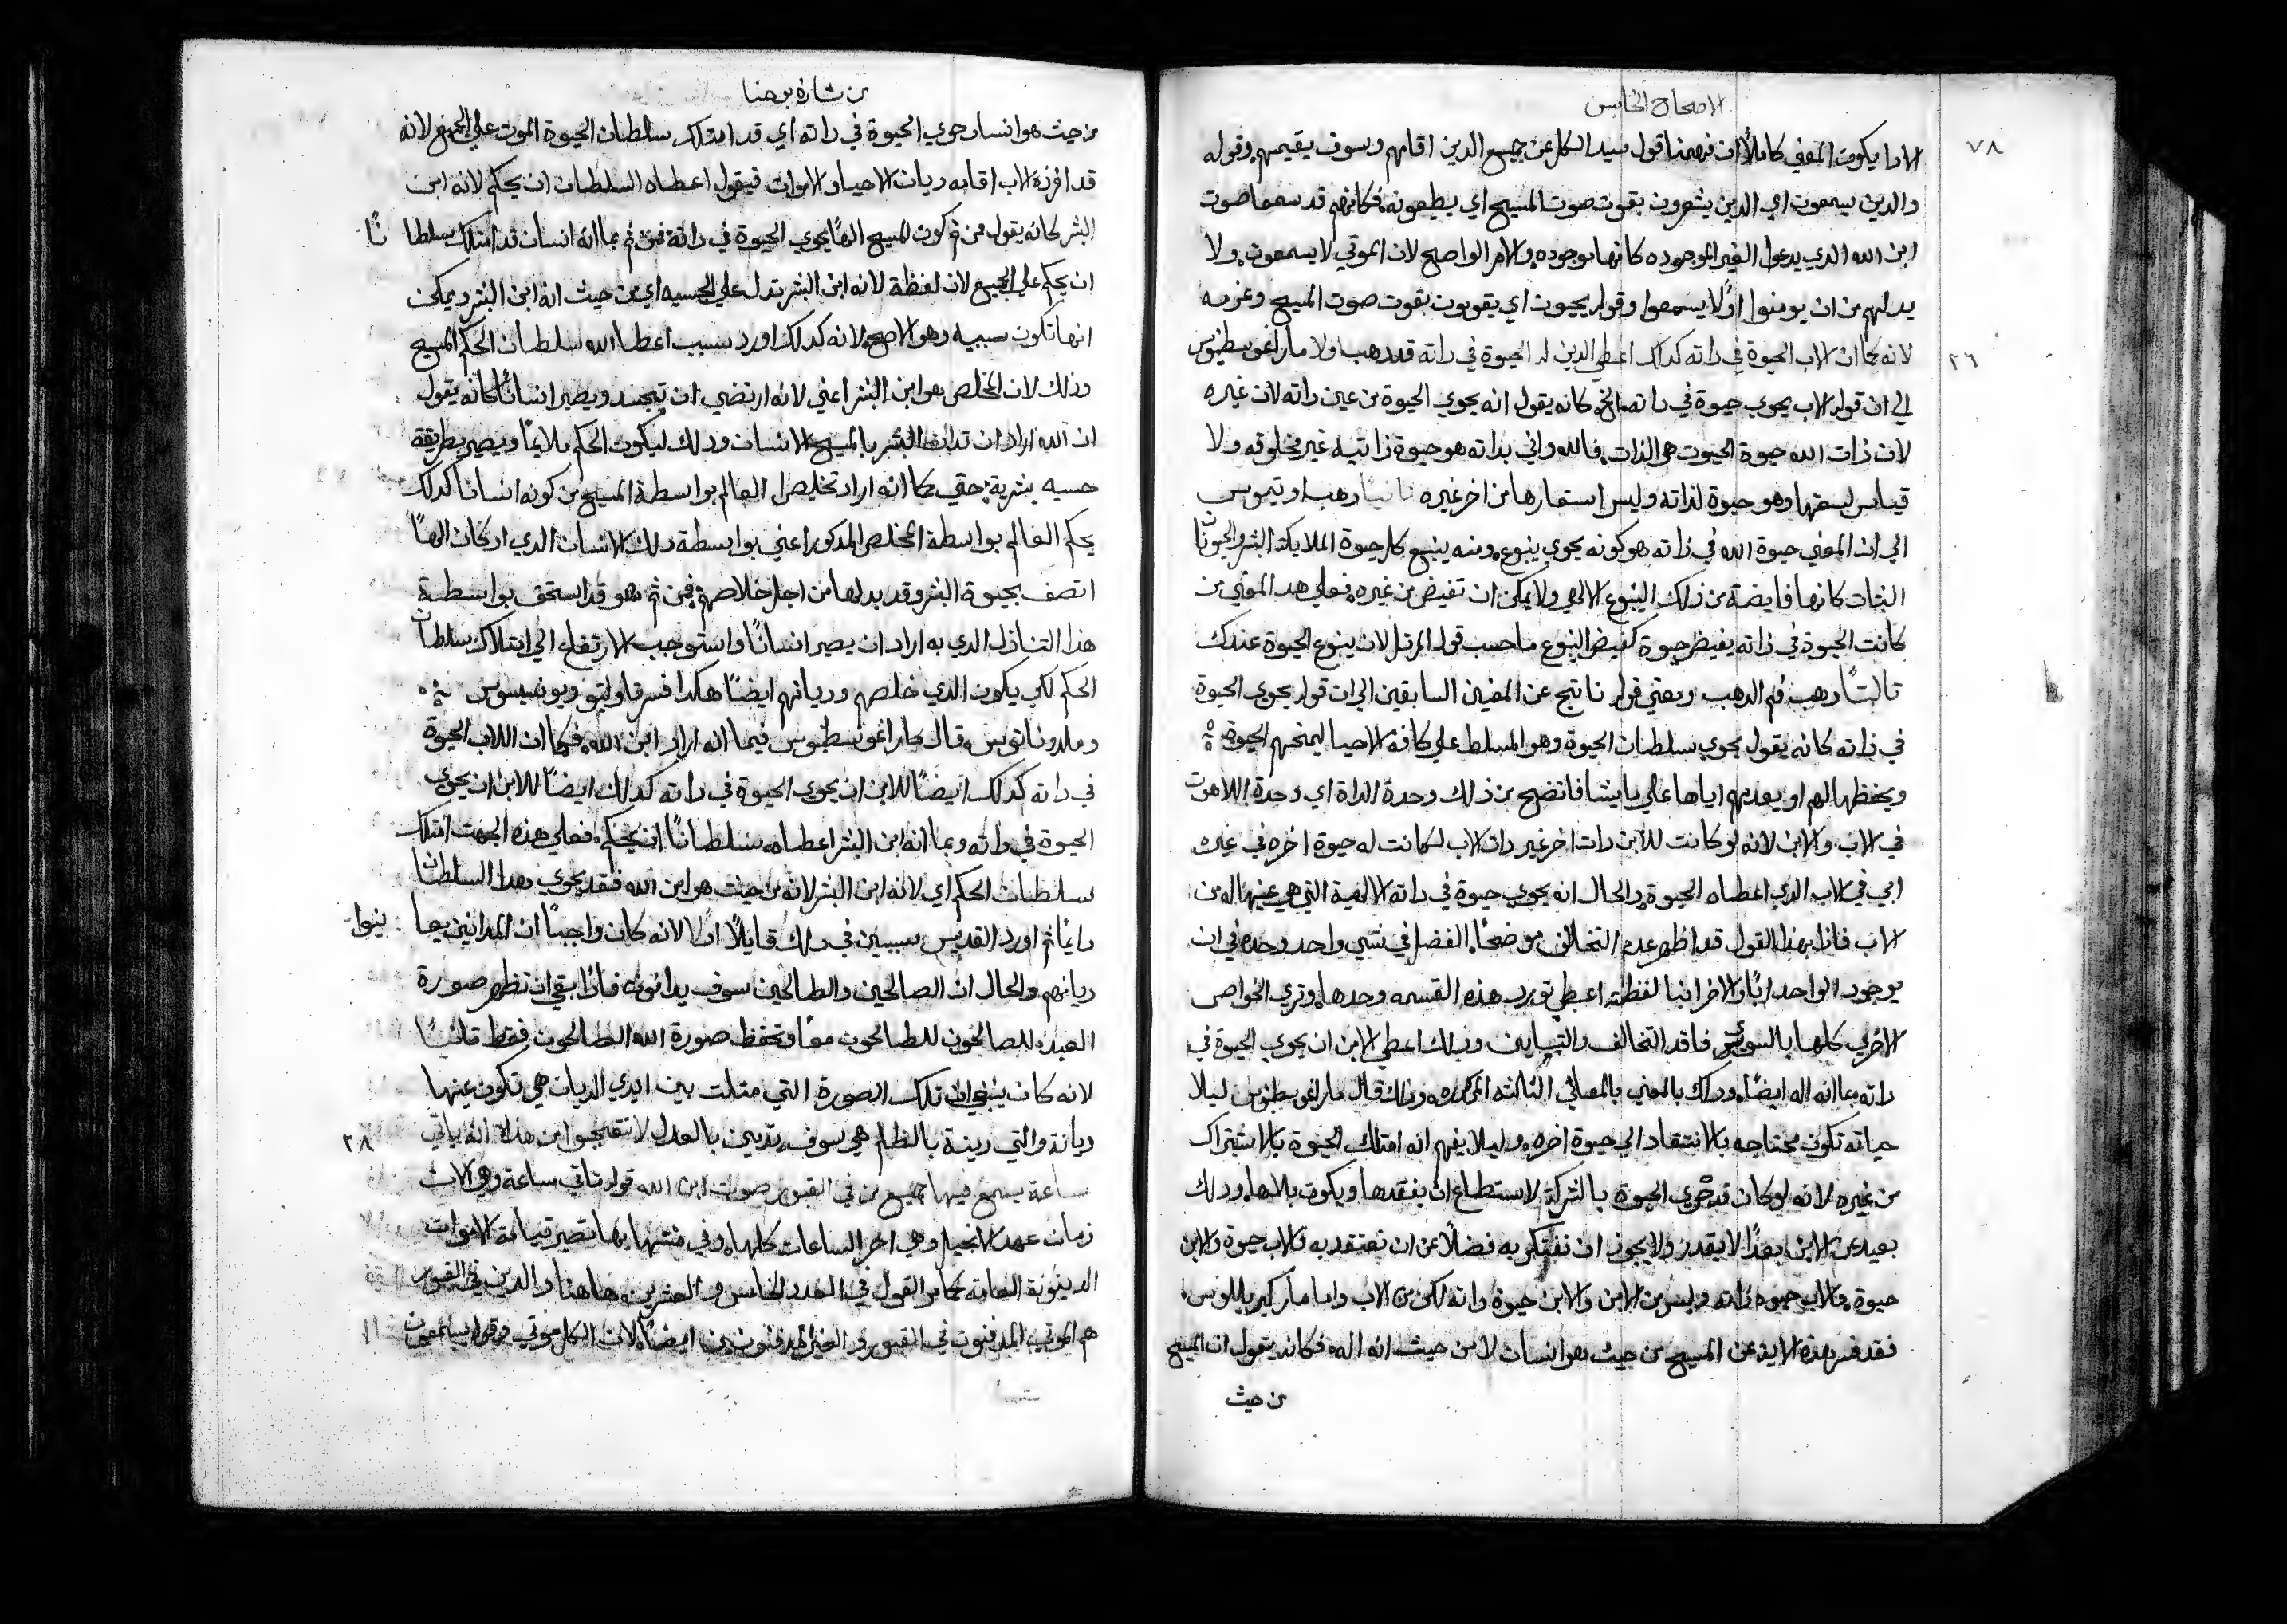 الاصحاح الخامس
٧٨
الاما يكون المعني كاملاً ان فهمنا قول سيد الكل عن جميع الدين اقامهم وسوف يقيمهم وقوله
والدين يسمعون اي الدين يشعرون بقوت صوت المسيح اي يطيعونه فكانهم قد سمعوا صوت
ابن الله الدي يدعوا الغير الموجوده كانها موجوده والامر الواضح لان الموتي لا يسمعون ولا
يد لهم من ان يومنوا اولا يسمعوا وقوله يحيون اي يقومون بقوت صوت المسيح وعزمه
٢٦
لانه كما ان الاب الحيوة في داته كدلك اعطي الدين له الحيوة في داته قد دهب اولا ماراغوسطينوس
الي ان قوله الاب يحوي حيوة في داته الخ كانه يقول انه يحوي الحيوة من عين داته لا من غيره
لان ذات الله حيوة الحيوت هي الذات فالله واني بداته هو حيوة ذاتيه غير مخلوقه ولا
قياس لسعتها وهو حيوة لذاته وليس استعارها من اخر غيره ثانياً دهب اوتيموس
الي ان المعني حيوة الله في ذاته هو كونه يحوي ينبوع ومنه ينبع كل حيوة الملايكة البشر والحيونات
النبات كانها فايضة من ذلك الينبوع الالهي ولا يمكن ان تفيض من غيره فعلي هدا المعني من
كانت الحيوة في ذاته يفيض حيوة كفيض الينبوع ما حسب قول المرتل لان ينبوع الحيوة عندك
تالتاً دهب فم الدهب ومعني قوله ناتج عن المعنين السابقين الي ان قوله يحوي الحيوة
في ذاته كانه يقول يحوي سلطان الحيوة وهو المسلط علي كافة الاحيا ليمنحهم الحيوة
ويحفظها لهم او يعدمهم اياها علي ما يشا فاتضح من ذلك وحدة الداة اي وحدة اللاهوت
في الاب والابن لانه لو كانت للابن دات اخر غير دات الاب لكانت له حيوة اخره في غيره
ابي في الاب الدي اعطاه الحيوة والحال انه يحوي حيوة في داته الالهية التي هي عينها له من
الاب فاذا بهذا القول قد اظهر عدم التخالف موضحاً الفضل في شي واحد وحده في ان
موجود الواحد اباً والاخر ابنا لفظة اعطي تورد هذه القسمه وحدها وتري الخواص
الاخري كلها بالسوي فاقد التخالف والتباين ودلك اعطي الابن ان يحوي الحيوة في
داته بما انه اله ايضاً ودلك بالمعني بالمعاني التالته المكرره ودلك قال ماراغوسطينوس ليلا
حياته تكون محتاجه بالانتقاد الي حيوة اخره وليلا يفهم انه امتلك الحيوة بالاشتراك
من غيره لانه لو كان قد حوي الحيوة بالشركة لاستطاع ان يفقدها ويكون بلاها ودلك
بعيد عن الابن بعداً لا يقدر ولا يجوز ان نفتكر به فضلاً عن ان نعتقد به فالاب حيوة والابن
حيوة فالاب حيوة ذاته وليس من الابن والابن حيوة داته لكن من الاب واما مار كيرللوس
فقد فسر هذه الايه عن المسيح من حيث هو انسان لا من حيث انه اله فكانه يقول ان المسيح
من حيث
من بشارة يوحنا
من حيث هو انسان حوي الحيوة في داته اي قد امتلك سلطان الحيوة الموت علي الجميع لانه
قد افرزه الاب اقامه ديان الاحيا والاموات فيقول اعطاه السلطان ان يحكم لانه ابن
البشر كانه يقول من تم كون المسيح الهاً يحوي الحيوة في داته فمن تم بما انه انسان قد امتلك سلطا ناً
ان يحكم علي الجميع لان لفظة لانه ابن البشر تدل علي الحسيه اي من حيث انه ابن البشر ويمكن
انها تكون سببيه وهو الاصح لانه كدلك اورد سبب اعطا الله سلطان الحكم المسيح
وذلك لان المخلص هو ابن البشر اعني لانه ارتضي ان يتجسد ويصير انساناً كانه يقول
ان الله اراد ان تدان البشر بالمسيح الانسان ودلك ليكون الحكم ملايماً ويصير بطريقة
حسيه بشرية حتي كما انه اراد تخليص العالم بواسطة المسيح من كونه انساناً كدلك
يحكم العالم بواسطة المخلص المدكور اعني بواسطة دلك الانسان الدي اد كان الهاً
اتصف بحيوة البشر وقد بدلها من اجل خلاصهم فمن تم هو قد استحق بواسطة
هذا التنازل الدي به اراد ان يصير انساناً واستوجب الارتفاع الي امتلاك سلطان
الحكم لكي يكون الدي خلصهم وديانهم ايضاً هكدا فسر تاوليتو ويونيسيوس
وملدوناتوس قال ماراغوسطينوس فيما انه اراد ابن الله فكما ان اللاب الحيوة
في داته كدلك ايضاً للابن ان يحوي الحيوة في داته كدلك ايضاً للابن ان يحوي
الحيوة في داته وبما انه ابن البشر اعطاه سلطاناً ان يحكم فعلي هذه الجهت امتلك
سلطان الحكم اي لانه ابن البشر لانه من حيث هو ابن الله فقد يحوي هدا السلطان
دايماً تم اورد القديس سببين في دلك قايلاً اولاً لانه كان واجباً ان المدانين يعا ينوا
ديانهم والحال ان الصالحين والطالحين سوف يدانون فاذا بقي ان تظهر صورة
العبد للصالحون للطالحون معاً وتحفظ صورة الله الصالحون فقط تانياً
لانه كان ينبغي ان تلك الصورة التي مثلت بين ايدي الديان هي تكون عينها
ديانة والتي دينة بالظلم هي سوف تدين بالعدل لا تتعجبوا من هدا انه ياتي
٢٨
ساعة يسمع فيها جميع من في القبور صوت ابن الله قوله تاتي ساعة وهي الان
زمان عهد الانجيل وهي اخر الساعات كلها وفي منتهايها تصير قيامة الاموات
الدينونة العامة كما مر القول في العدد الخامس والعشرين هاهنا والدين في القبور
هم الموتي المدفنون في القبور والغير المدفنون ايضاً لان الكل موتي وقوله يسمعون